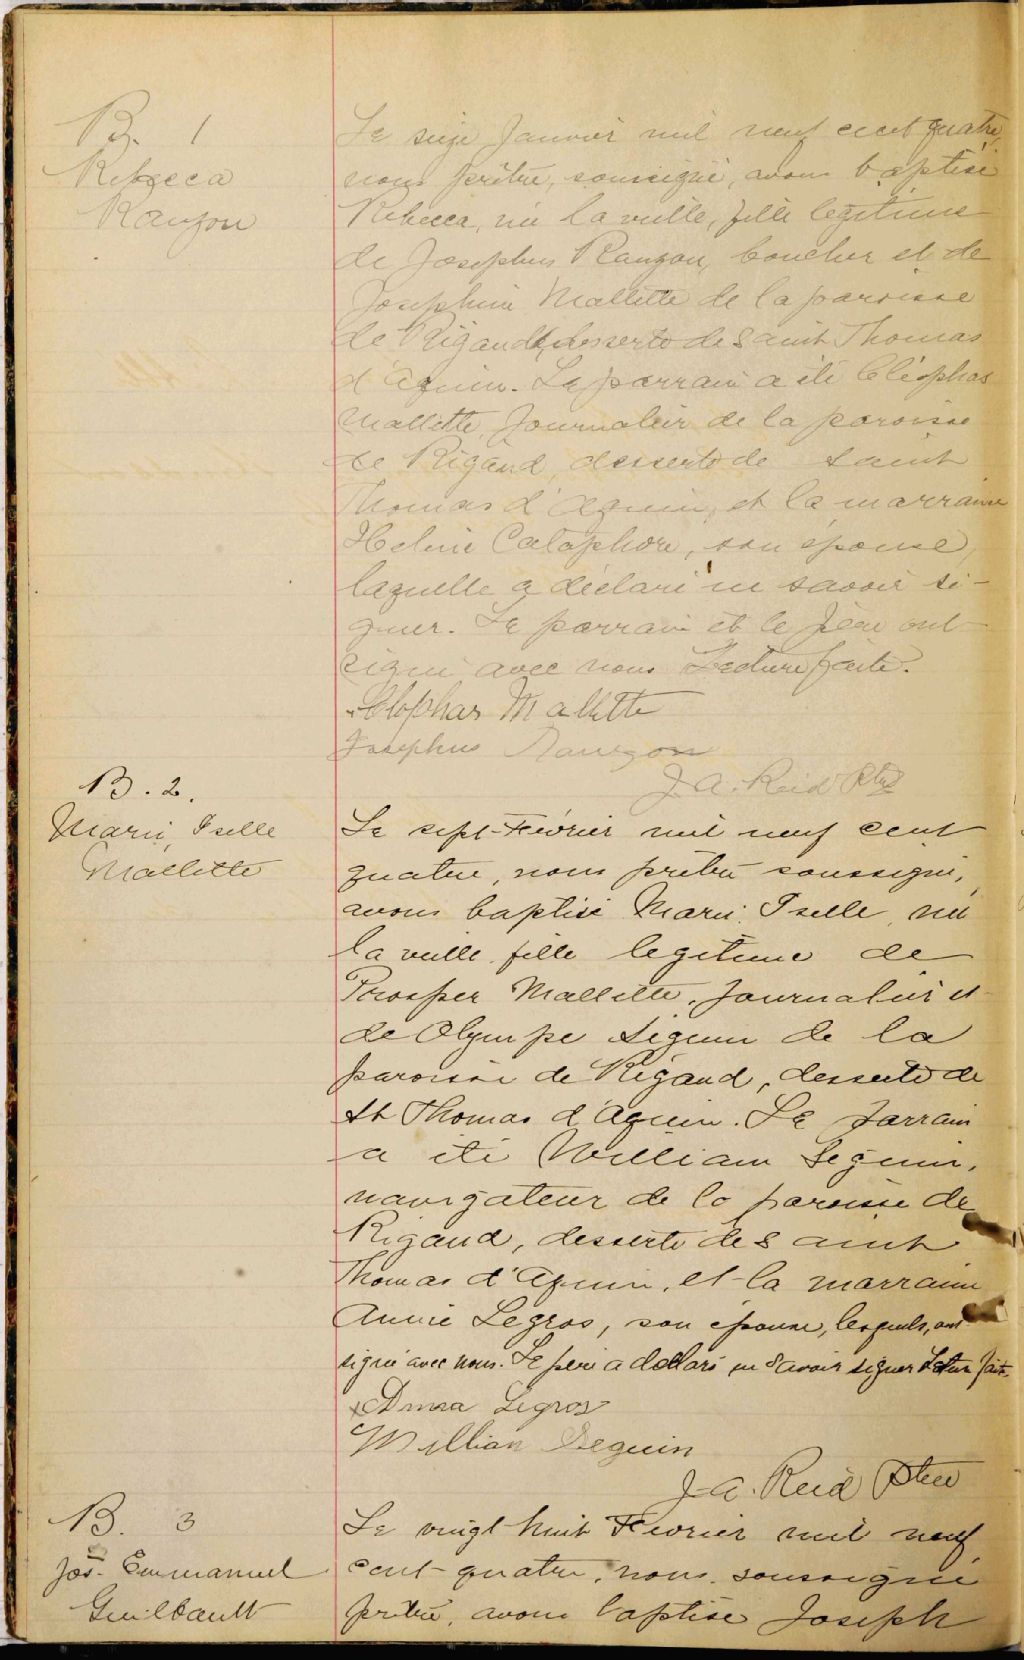 B. 1
Rebecca
Ranzon
Le seize Janvier mil neuf cent quatre,
nous prêtre, soussigné, avons baptisé
Rebecca, née la veille, fille legitime
de Josephus Ranzon, boucher et de
Josephine Mallette de la paroisse
de Rigaud, desserte de Saint Thomas
d'Aquin. Le parrain a été Cléophas
Mallette, Journalier de la paroisse
de Rigaud, desserte de Saint
Thomas d'Aquin, et la marraine
Helene Cataphore, son épouse,
laquelle a déclaré ne savoir si-
gner. Le parrain et le père ont
signé avec nous Lecture faite.
Clophas Mallette
Josephus Ranzon
J. A. Reid Ptre
B. 2.
Marie, Iselle
Mallette
Le sept Février mil neuf cent
quatre, nous prêtre soussigné,
avons baptisé Marie, Iselle, née
la veille, fille legitime de
Prosper Mallette, Journalier et
de Olympe Séguin de la
paroisse de Rigaud, desserte de
St Thomas d'Aquin. Le Parrain
a été William Seguin,
navigateur de la paroisse de
Rigaud, desserte de Saint
Thomas d'Aquin, et la marraine
Annie Legros, son épouse, lesquels, ont
signé avec nous. Le père a déclaré ne savoir signer Lecture faite.
Anna Legros
Willian Seguin
J. A. Reid Ptre
B. 3
Jos. Emmanuel
Guilbault
Le vingt huit Fevrier mil neuf
cent quatre, nous, soussigné
prêtre, avons baptisé Joseph